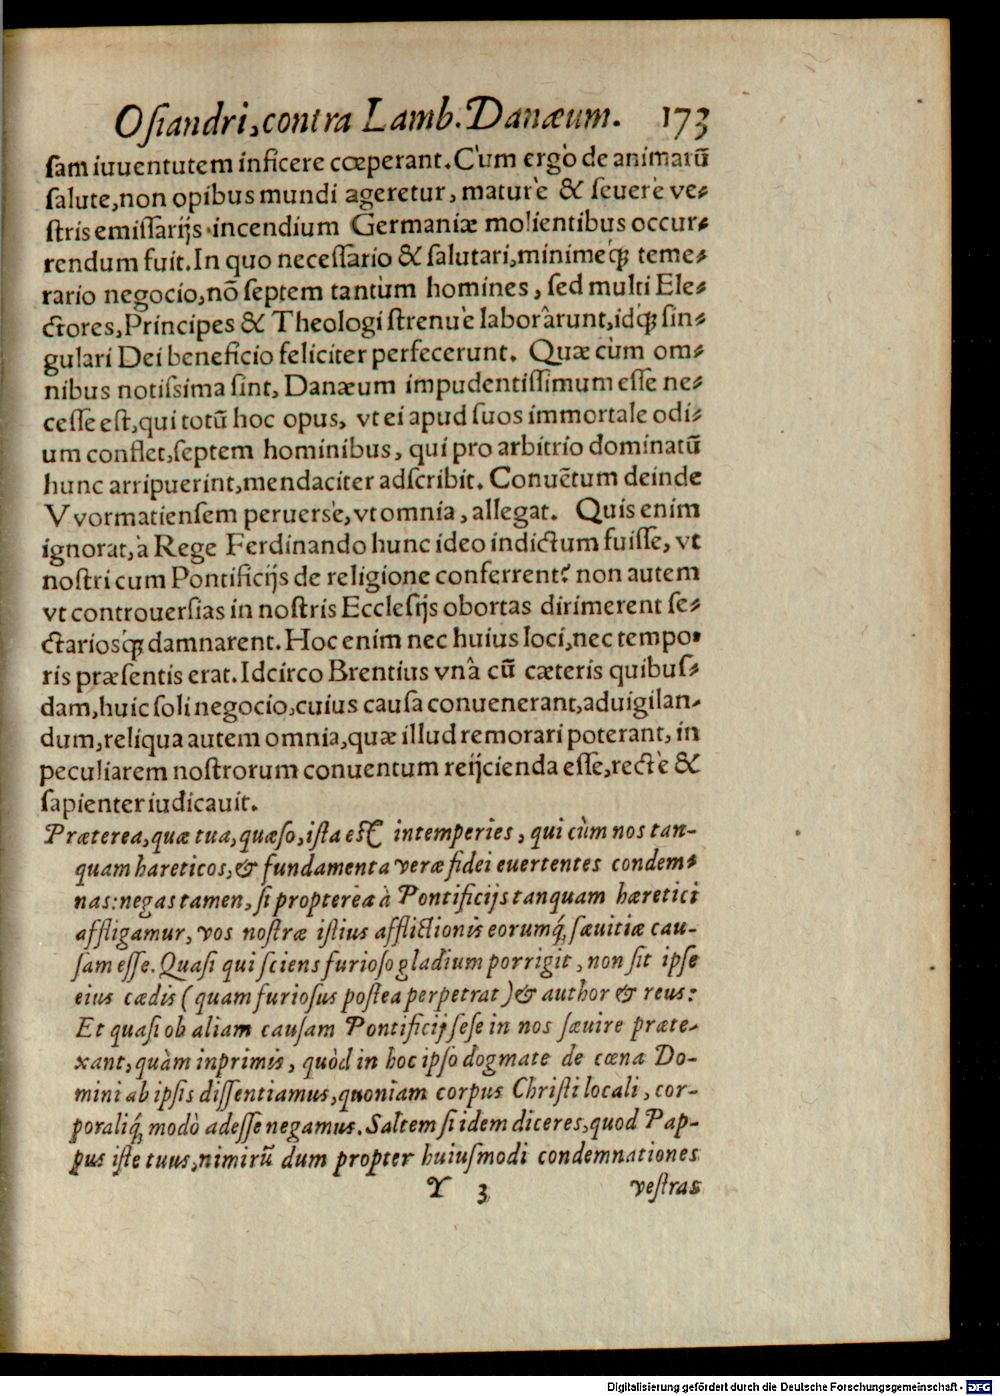 Osiandri, contra Lamb. Danæum. 173
sam iuuentutem inficere cœperant. Cùm ergò de animarũ
salute, non opibus mundi ageretur, maturè & seuerè ve-
stris emissarijs incendium Germaniæ molientibus occur-
rendum fuit. In quo necessario & salutari, minimeq́; teme-
rario negocio, nõ septem tantùm homines, sed multi Ele-
ctores, Principes & Theologi strenuè laborârunt, idq́; sin-
gulari Dei beneficio feliciter perfecerunt. Quæ cùm om-
nibus notissima sint, Danæum impudentissimum esse ne-
cesse est, qui totũ hoc opus, vt ei apud suos immortale odi-
um conflet, septem hominibus, qui pro arbitrio dominatũ
hunc arripuerint, mendaciter adscribit. Conuẽtum deinde
VVormatiensem peruersè, vt omnia, allegat. Quis enim
ignorat, à Rege Ferdinando hunc ideo indictum fuisse, vt
nostri cum Pontificijs de religione conferrent? non autem
vt controuersias in nostris Ecclesijs obortas dirimerent se-
ctariosq́; damnarent. Hoc enim nec huius loci, nec tempo-
ris præsentis erat. Idcirco Brentius vnâ cũ cæteris quibus-
dam, huic soli negocio, cuius causa conuenerant, aduigilan-
dum, reliqua autem omnia, quæ illud remorari poterant, in
peculiarem nostrorum conuentum reijcienda esse, rectè &
sapienter iudicauit.
Præterea, quæ tua, quæso, ista est intemperies, qui cùm nos tan-
quam hæreticos, & fundamenta veræ fidei euertentes condem-
nas: negas tamen, si proptereà à Pontificijs tanquam hæretici
affligamur, vos nostræ istius afflictionis eorumq́; sæuitiæ cau-
sam esse. Quasi qui sciens furioso gladium porrigit, non sit ipse
eius cædis (quam furiosus postea perpetrat) & author & reus:
Et quasi ob aliam causam Pontificij sese in nos sæuire præte-
xant, quàm inprimis, quòd in hoc ipso dogmate de cœna Do-
mini ab ipsis dissentiamus, quoniam corpus Christi locali, cor-
poraliq́; modò adesse negamus. Saltem si idem diceres, quod Pap-
pus iste tuus, nimirũ dum propter huiusmodi condemnationes
Y 3 vestras
Digitalisierung gefördert durch die Deutsche Forschungsgemeinschaft - DFG